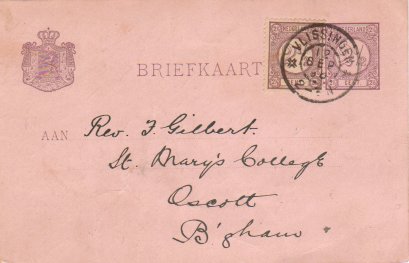 VLISSINGEN
SEP
BRIEFKAART
AAN
Rev. F. Gilbert.
St. Mary's College
Oscott
B'gham